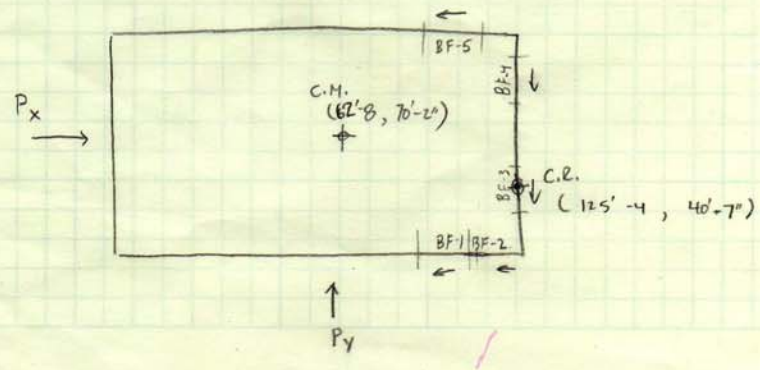 BF-5
BF-4
C.M.
(62'-8, 70'-2")
Px
BF-3
C.R.
(125'-4, 40'-7")
BF-1
BF-2
Py